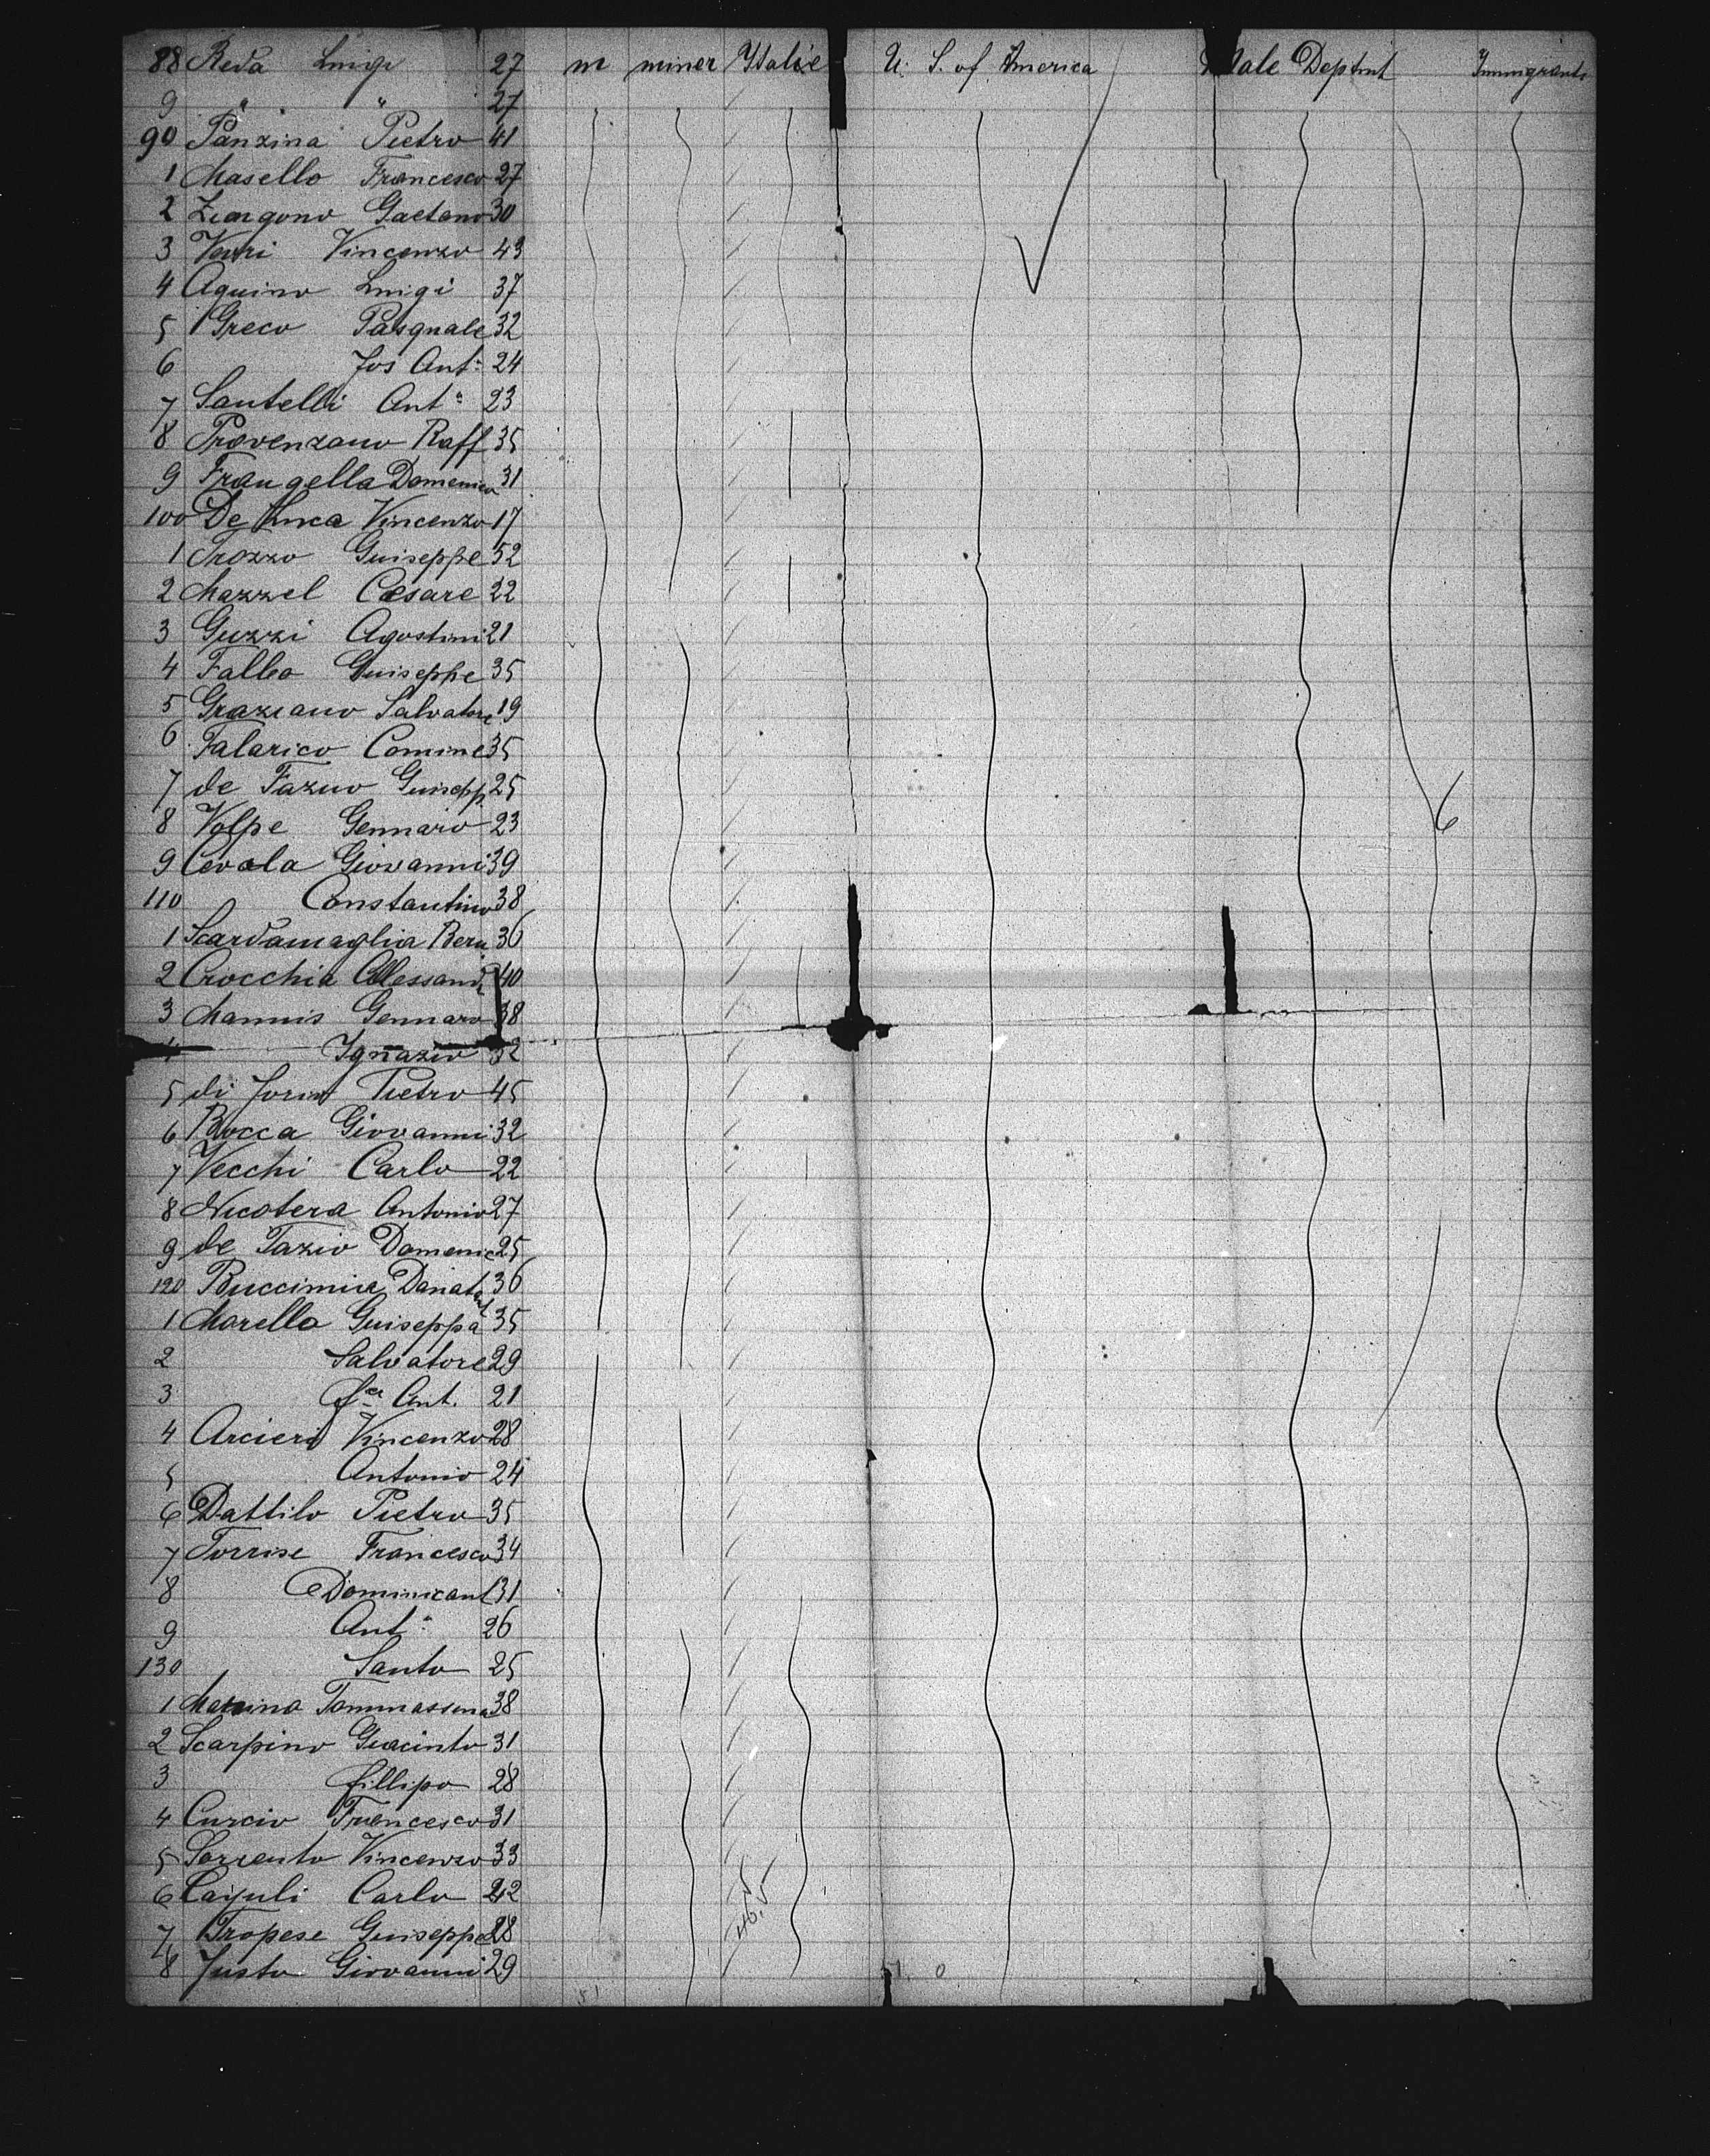 88 Reda Luigi 27 m miner Ytalie U. S. of America Male Deptmt Immigrants
9 " " 27
90 Panzina Pietro 41
1 Masello Francesco 27
2 Zungono Gaetano 30
3 Verri Vincenzo 43
4 Aquino Luigi 37
5 Greco Pasquale 32
6 Jos Ant: 24
7 Santelli Ant: 23
8 Provenzano Raff 35
9 Frangella Domenico 31
100 De Luca Vincenzo 17
1 Trozzo Guiseppe 52
2 Mazzel Cesare 22
3 Guzzi Agostini 21
4 Falbo Guiseppe 35
5 Graziano Salvatore 19
6 Talarico Comine 35
7 de Fazuo Guisepp. 25
8 Volpe Gennaro 23
9 Cerola Giovanni 39
110 Constantino 38
1 Scardamaglia Bern 36
2 Crocchia Allessand 40
3 Mannis Gennaro 38
4 Ignazio 32
5 di Jorio Pietro 45
6 Bocca Giovanni 32
7 Vecchi Carlo 22
8 Nicotera Antonio 27
9 de Fazio Domenic 25
120 Buccimia Donato 36
1 Morello Guiseppa 35
2 Salvatore 29
3 Ant. 21
4 Arcieri Vincenzo 28
5 Antonio 24
6 Dattilo Pietro 35
7 Torrise Francesco 34
8 Dominicant 31
9 Ant: 26
130 Santo 25
1 Marino Tommassina 38
2 Scarpino Giacinto 31
3 fillipo 28
4 Curcio Francesco 31
5 Sorrento Vincenzo 33
6 Carlo 42
7 Tropese Guiseppe 28
8 Justo Giovanni 29
51